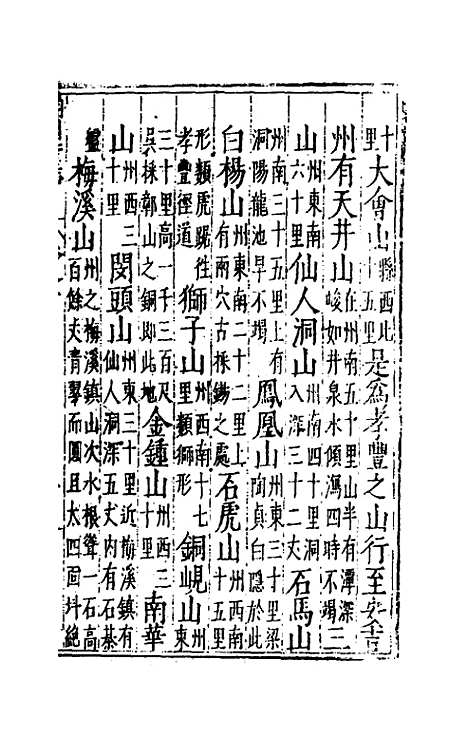 十里大會山縣西北十五里是爲孝豐之山行至安吉
州有天井山在州南五十里山半有潭深峻如井泉水傾瀉四時不竭三
山州東南六十里仙人洞山州南四十里洞入深三十二丈石馬山
州南三十五里上有洞陽龍池旱不竭鳳凰山州東三十里梁陶貞白隱於此
白楊山州東南二十二里上有兩穴古採錫之處石虎山州西南十五里
形類虎踞往孝豐徑道獅子山州西南十七里類獅形銅峴山州東
三十里高一千三百尺吳採鄣山之銅即此地金鍾山州西三十里南華
山州西三十里閔頭山州東三十里近梅溪鎮有仙人洞深五丈內有石碁
盤梅溪山州之梅溪鎮山次水根聳一石高百餘丈青翠而圓且大四面抖絶